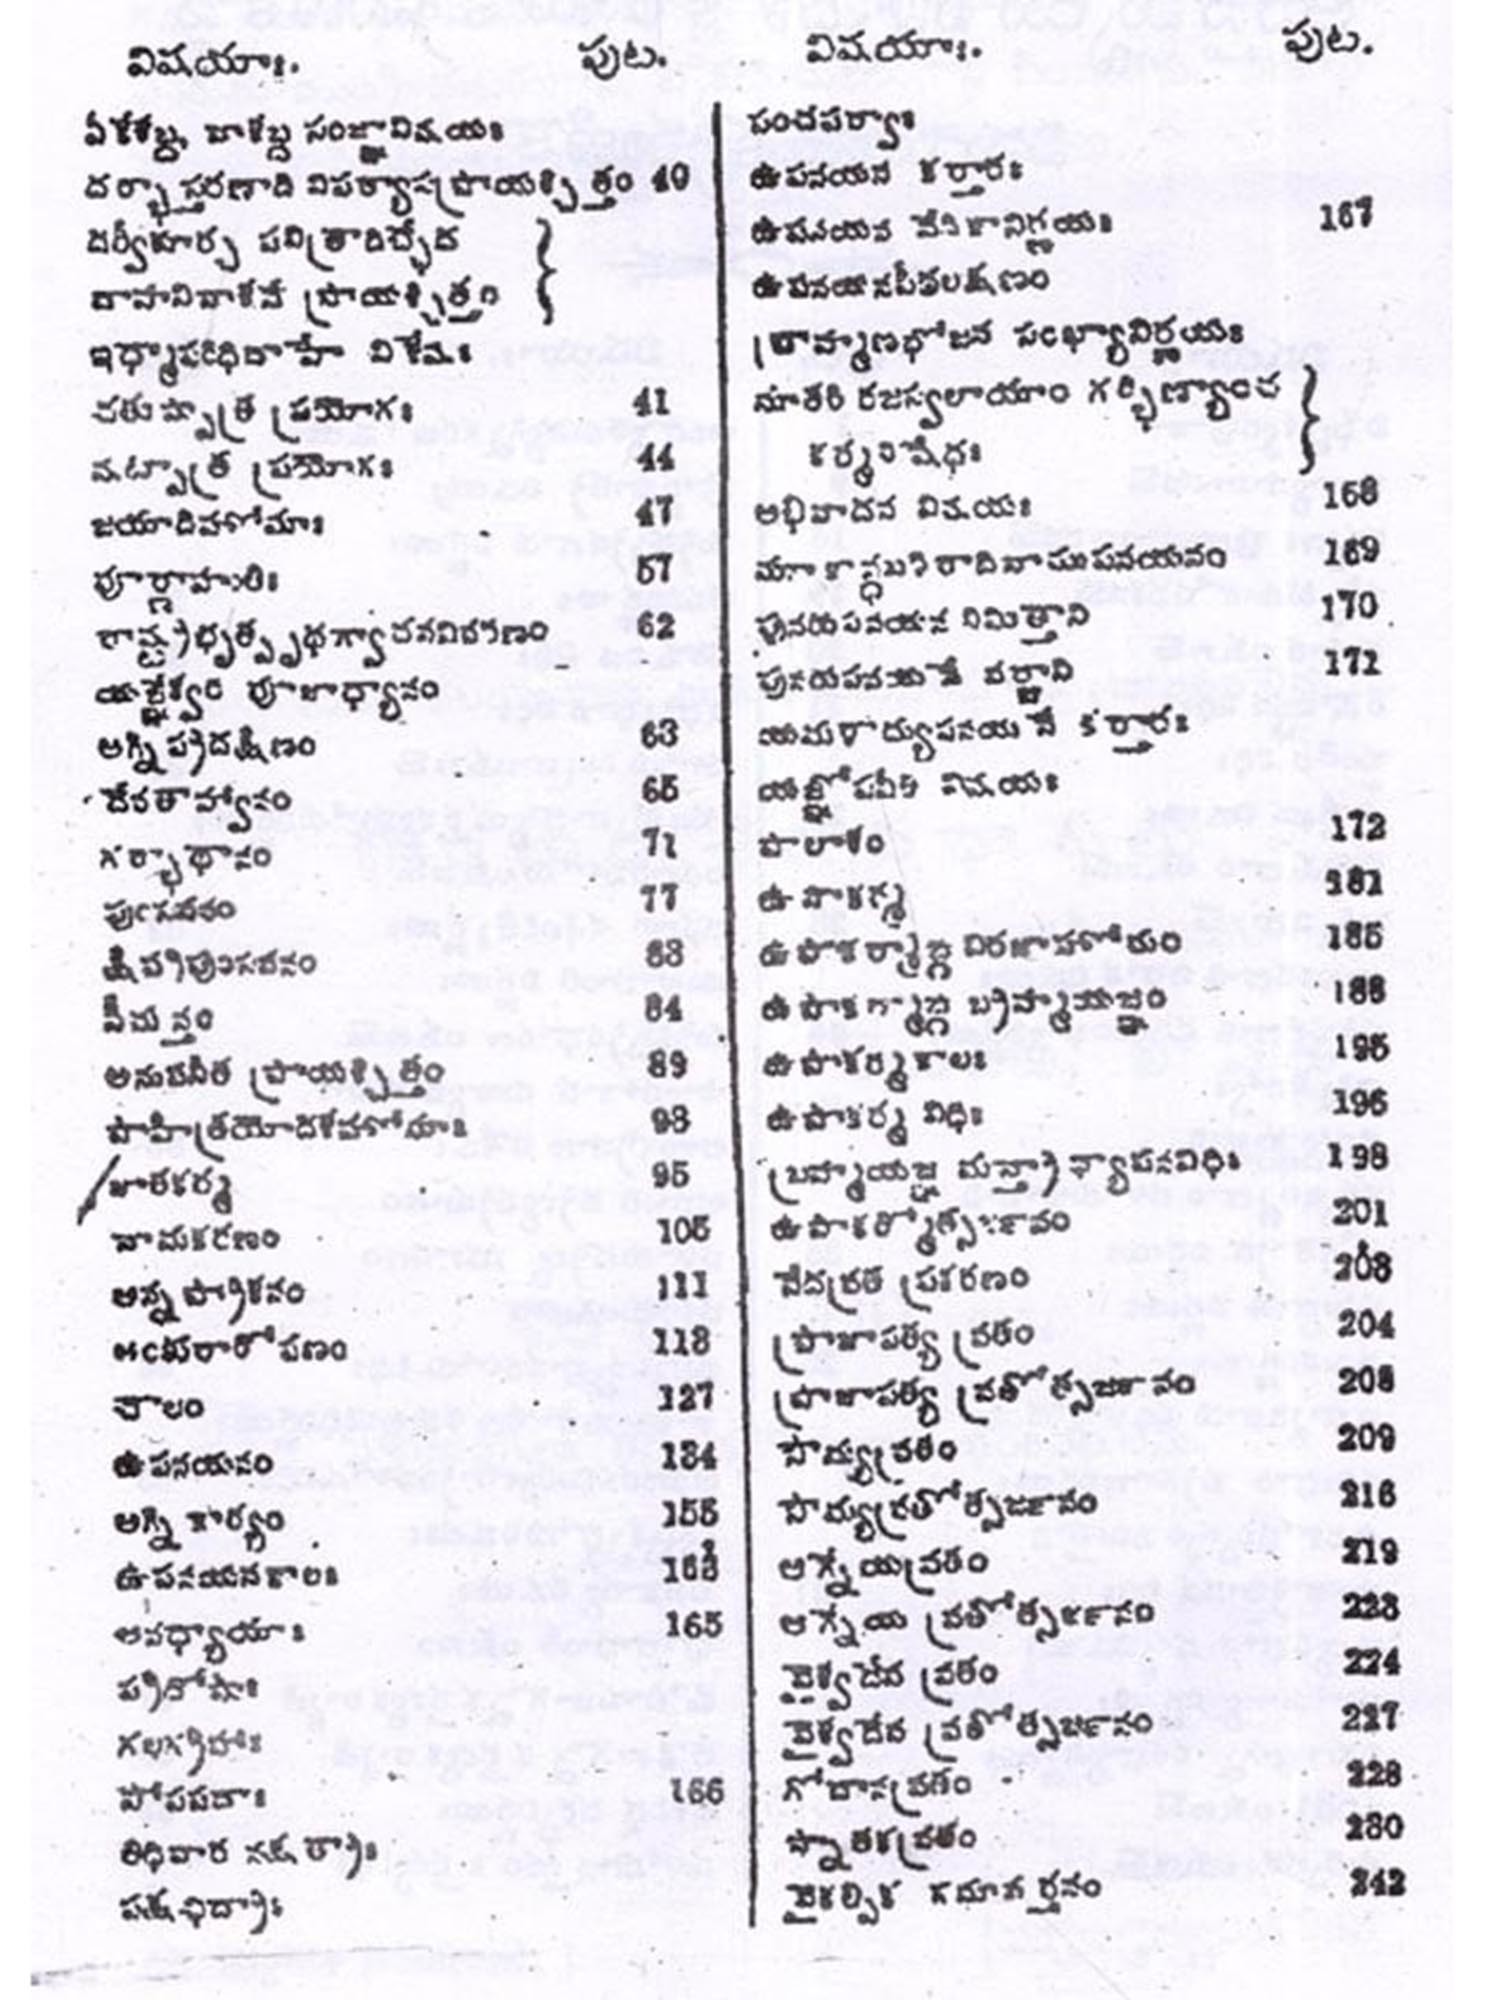 విషయాః. పుట.
దర్భాస్తరణాది విపర్యాసప్రాయశ్చిత్తం 40
దర్వీకూర్చ పవిత్రాదిచ్ఛేద
ప్రాయశ్చిత్తం
చతుష్పాత్ర ప్రయోగః 41
షట్పాత్ర ప్రయోగః 44
జయాదిహోమాః 47
పూర్ణాహుతిః 57
62
యజ్ఞేశ్వర పూజాధ్యానం
అగ్ని ప్రదక్షిణం 63
దేవతాహ్వానం 65
గర్భాధానం 71
పుంసవనం 77
83
సీమన్తం 84
అనుపనీత ప్రాయశ్చిత్తం 89
పాహిత్రయోదశహోమాః 93
జాతకర్మ 95
నామకరణం 105
అన్నప్రాశనం 111
అంకురారోపణం 118
చౌలం 127
ఉపనయనం 134
అగ్నికార్యం 155
ఉపనయనకాలః 163
అనధ్యాయాః 165
ప్రదోషాః
గలగ్రహాః
సోపపదాః 166
తిథివార నక్షత్రాః
పక్షఛిద్రాః
విషయాః. పుట.
పంచపర్వాః
ఉపనయన కర్తారః
ఉపనయన వేదికానిర్ణయః 167
ఉపనయనపీఠలక్షణం
బ్రాహ్మణభోజన సంఖ్యానిర్ణయః
మాతరి రజస్వలాయాం గర్భిణ్యాంచ
కర్మనిషేధః
అభివాదన విషయః 168
మూకాన్ధబధిరాదీనాముపనయనం 169
పునరుపనయన నిమిత్తాని 170
పునరుపనయనే వర్జ్యాని 171
కర్తారః
యజ్ఞోపవీత విషయః
పాలాశం 172
ఉపాకర్మ 181
ఉపాకర్మాఙ్గ విరజాహోమం 185
ఉపాకర్మాఙ్గ బ్రహ్మయజ్ఞం 188
ఉపాకర్మకాలః 195
ఉపాకర్మ విధిః 196
బ్రహ్మయజ్ఞ మన్త్రాధ్యాపనవిధిః 198
ఉపాకర్మోత్సర్జనం 201
వేదవ్రత ప్రకరణం 203
ప్రాజాపత్య వ్రతం 204
ప్రాజాపత్య వ్రతోత్సర్జనం 208
సౌమ్యవ్రతం 209
సౌమ్యవ్రతోత్సర్జనం 216
ఆగ్నేయవ్రతం 219
ఆగ్నేయ వ్రతోత్సర్జనం 223
వైశ్వదేవ వ్రతం 224
వైశ్వదేవ వ్రతోత్సర్జనం 227
గోదానవ్రతం 228
స్నాతకవ్రతం 230
వైకల్పిక సమావర్తనం 242